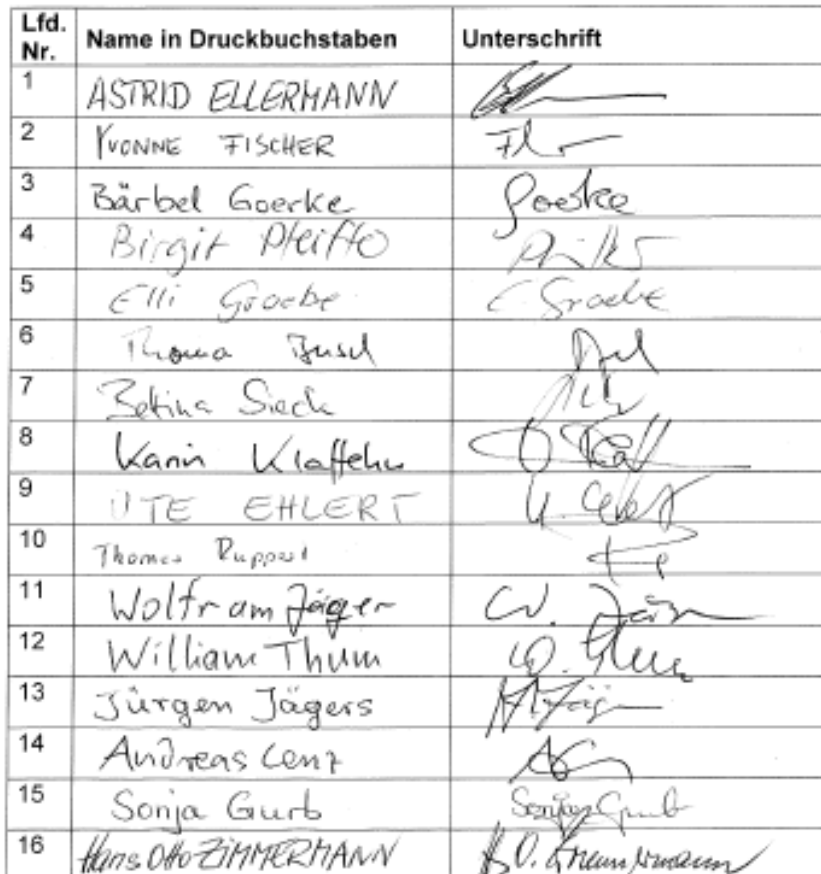 Lfd. Nr. Name in Druckbuchstaben Unterschrift
1 ASTRID ELLERMANN
2 YVONNE FISCHER
3 Bärbel Goerke Goerke
4 Birgit
5 Elli Groebe E Groebe
6
7 Bettina Sieck
8 Karin Klaffehn
9 UTE EHLERT U. Ehlert
10 Thomas Ruppert
11 Wolfram Jäger W. Jäger
12 William Thum W. Thum
13 Jürgen Jägers
14 Andreas Lenz
15 Sonja Gurb Sonja Gurb
16 Hans Otto ZIMMERMANN H. O. Zimmermann